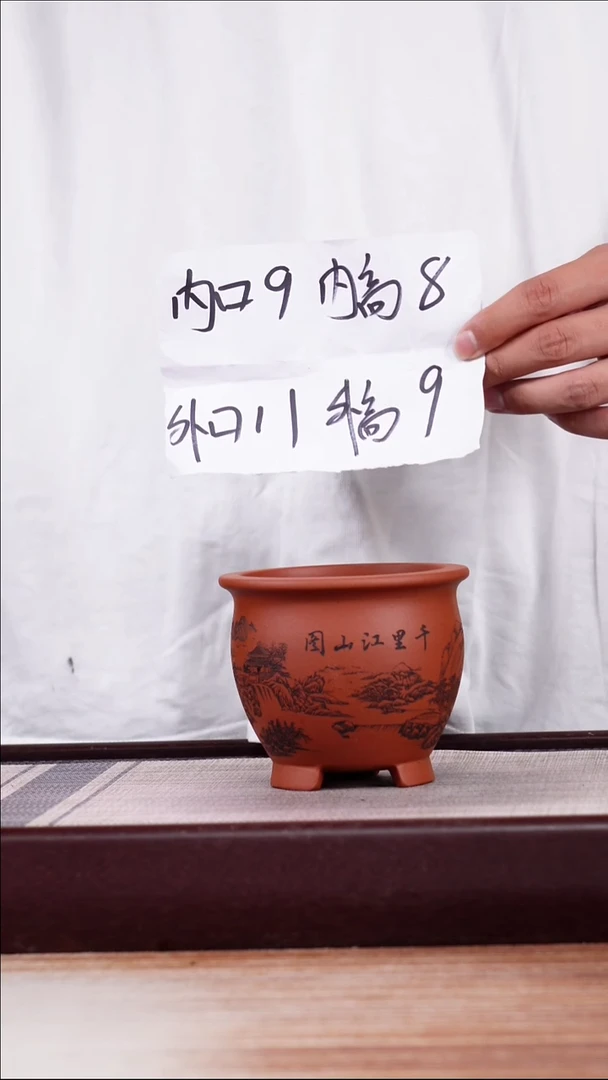 内口9 内高8
外口11 外高9
千里江山图